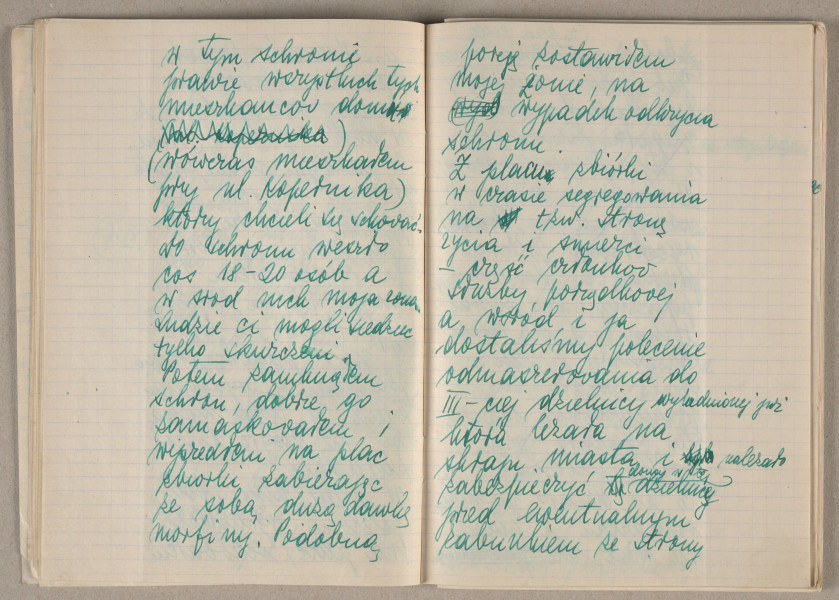 w tym schronie
prawie wszystkich tych
mieszkańcov domu
(wówczas mieszkałem
przy ul. Kopernika)
którzy chcieli się schować.
do schronu weszło
cos 18-20 osób a
w srod nich moja żona.
Ludzie ci mogli siedziec
tylko skurczeni.
Potem zamknąłem
schron, dobrze go
zamaskovałem i
wyszedłem na plac
zbiorki, zabierając
ze sobą dużą dawkę
morfiny. Podobną
porcję zostawiłem
mojej żonie, na
wypadek odkrycia
schronu.
Z placu zbiórki
w czasie segregowania
na tzw. stronę
życia i smierci
- część członkov
Służby porządkovej
a wsrod i ja
dostaliśmy polecenie
odmaszerovania do
III-ciej dzielnicy wysiedlonej już
która leżała na
skraju miasta i należało
zabezpieczyć dzielnicę
przed ewentualnym
rabunkiem ze strony